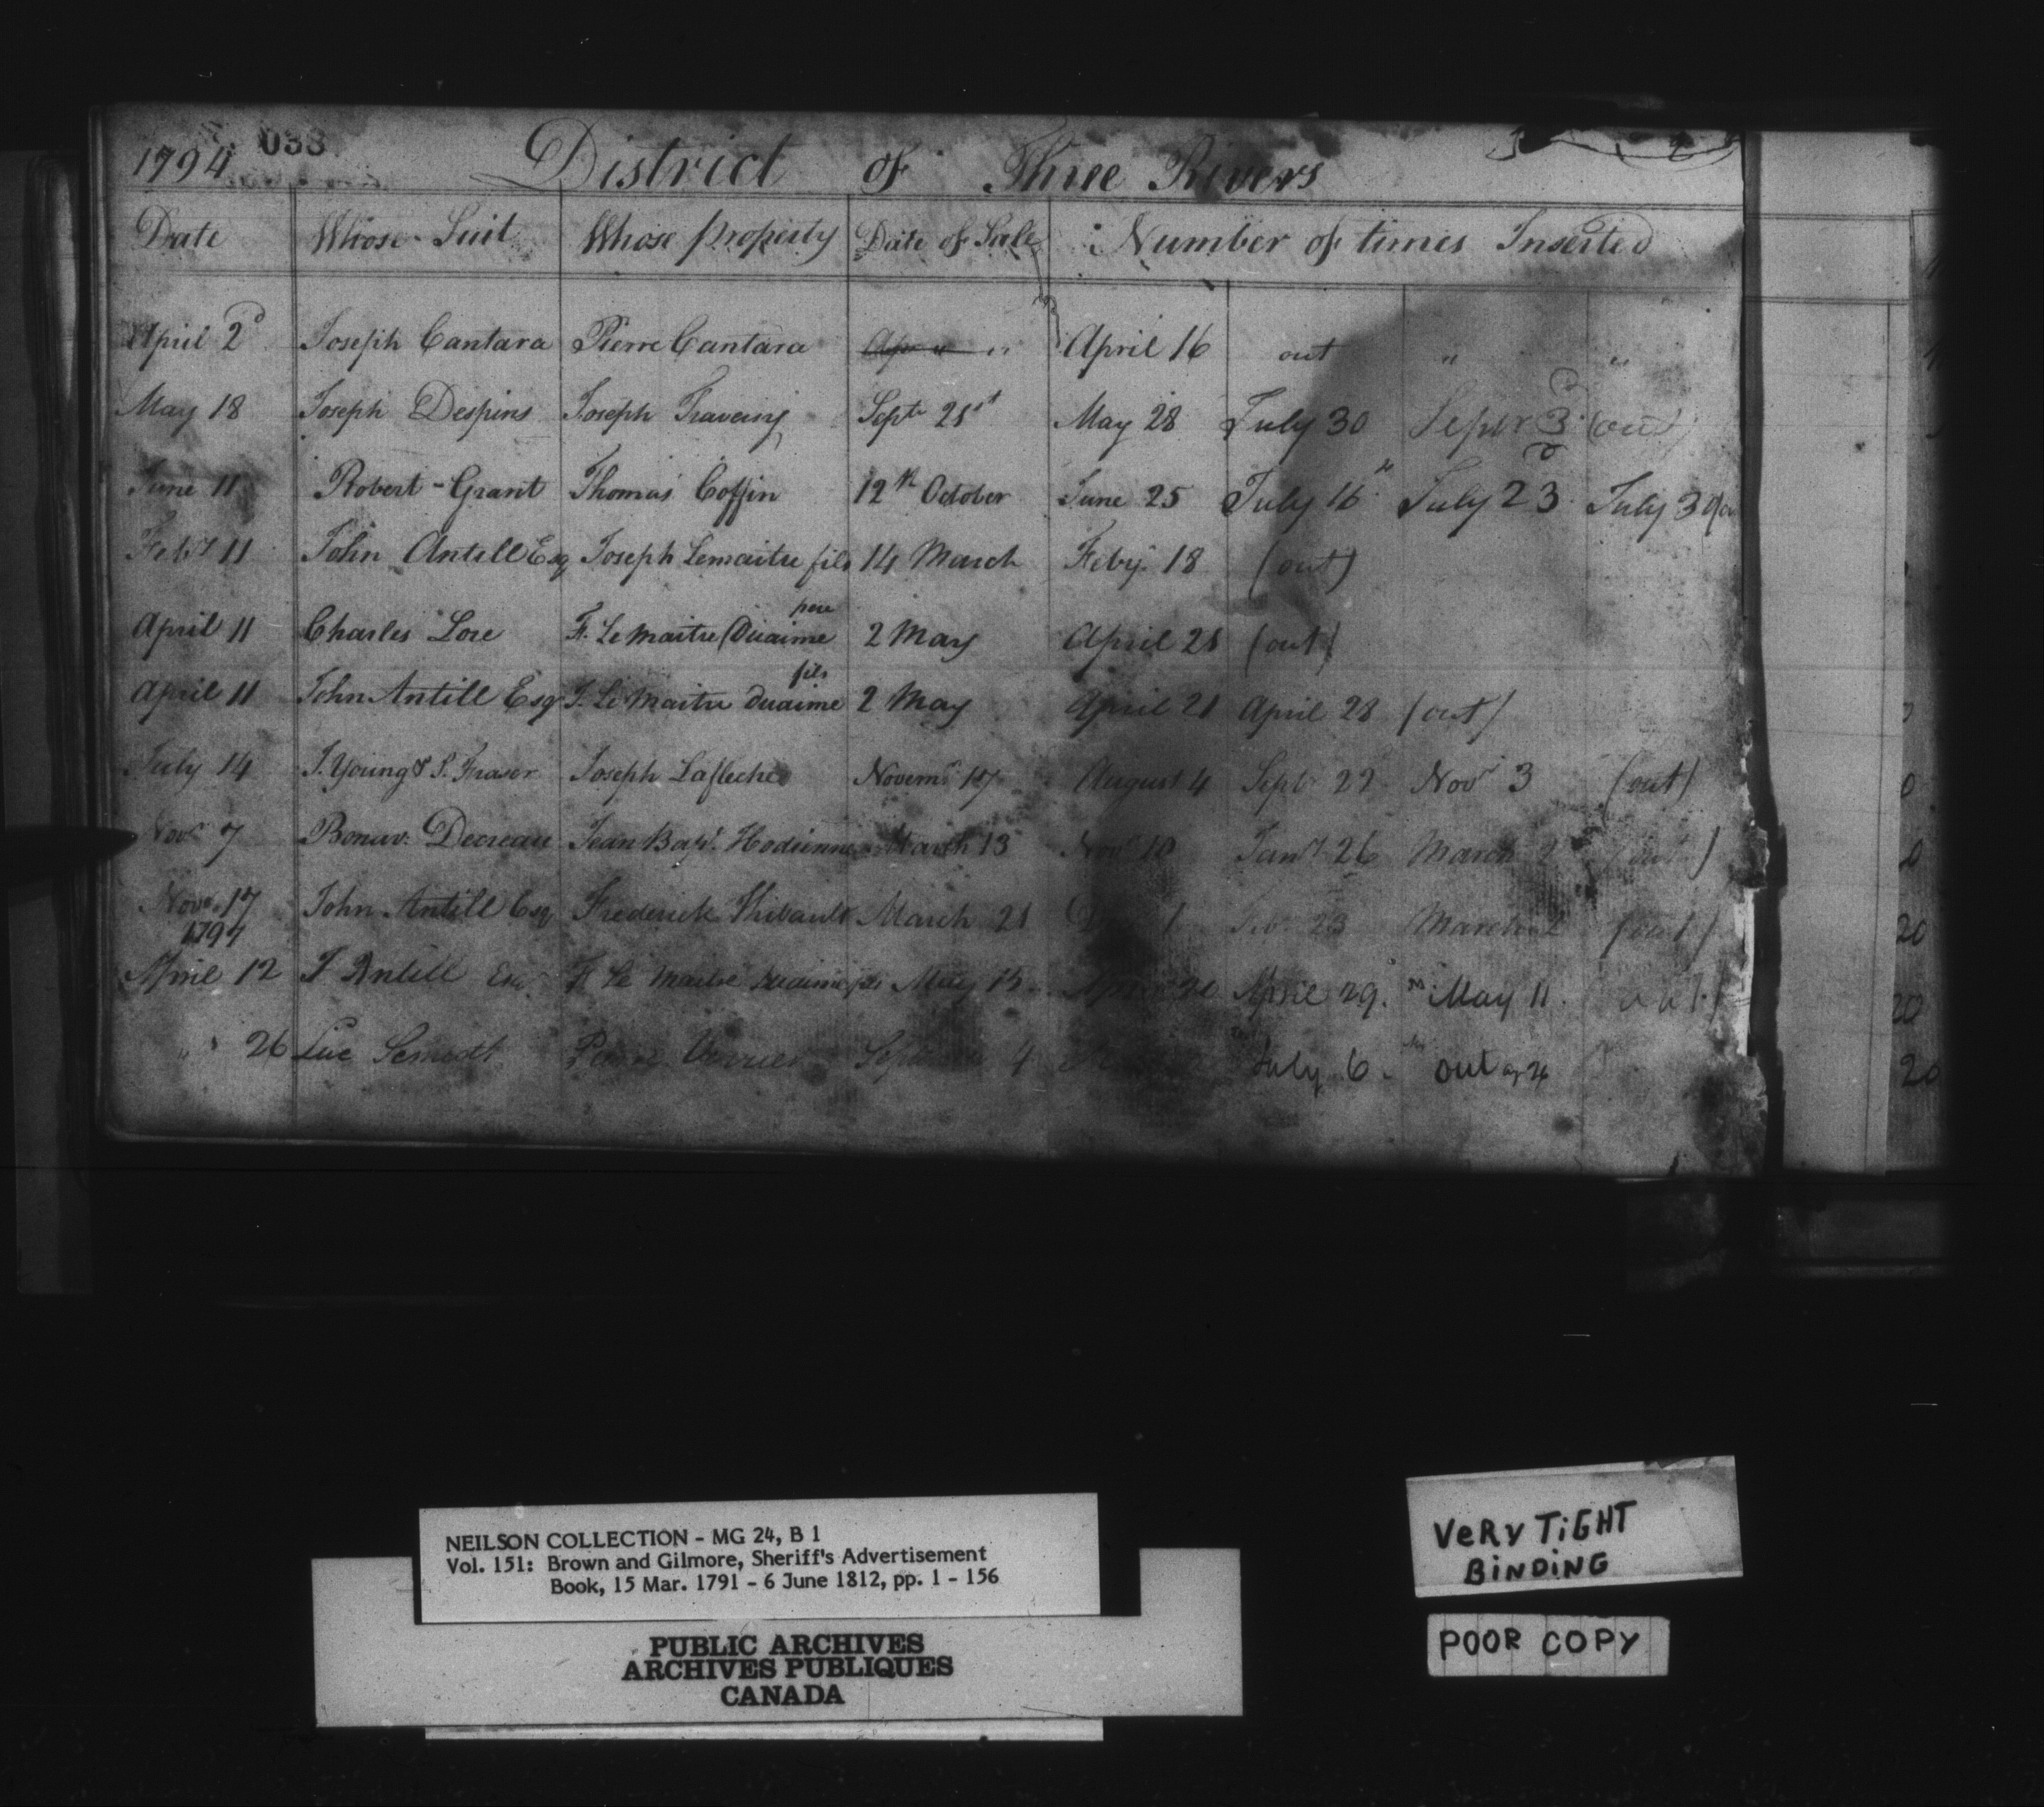 1794 033 District of Three Rivers
Date Whose Suit Whose property Date of Sale Number of times Inserted
April 2d Joseph Cantara Pierre Cantara " April 16 out " "
May 18 Joseph Despins Joseph Traversy Septr 21st May 28 July 30 Septr 3d (out)
June 11 Robert Grant Thomas Coffin 12th October June 25 July 16 July 23 July 30
Feby 11 John Antill Esq Joseph Lemaitre fils 14 March Feby 18 (out)
April 11 Charles Lore F. Le Maitre Duaime pere 2 May April 21 (out)
April 11 John Antill Esqr F. Le Maitre Duaime fils 2 May April 21 April 28 (out)
July 14 J. Young & S. Fraser Joseph Lafleche Novemr 17 August 4 Septr 22 Novr 3 (out)
Novr 7 Bonav. Jean Bapt. March 13 Novr 10 Jany 26 March 2 (out)
Novr 17 John Antill Esq Frederick Thibault March 21 1 23 March 2 (out)
1797
April 12 J. Antill Esq F. Le Maitre Duaime May 15 April 29. May 11.
" 26 Luc 4 July 6. out
NEILSON COLLECTION - MG 24, B 1
Vol. 151: Brown and Gilmore, Sheriff's Advertisement
Book, 15 Mar. 1791 - 6 June 1812, pp. 1 - 156
PUBLIC ARCHIVES
ARCHIVES PUBLIQUES
CANADA
VERY TiGHT
BiNDiNG
POOR COPY